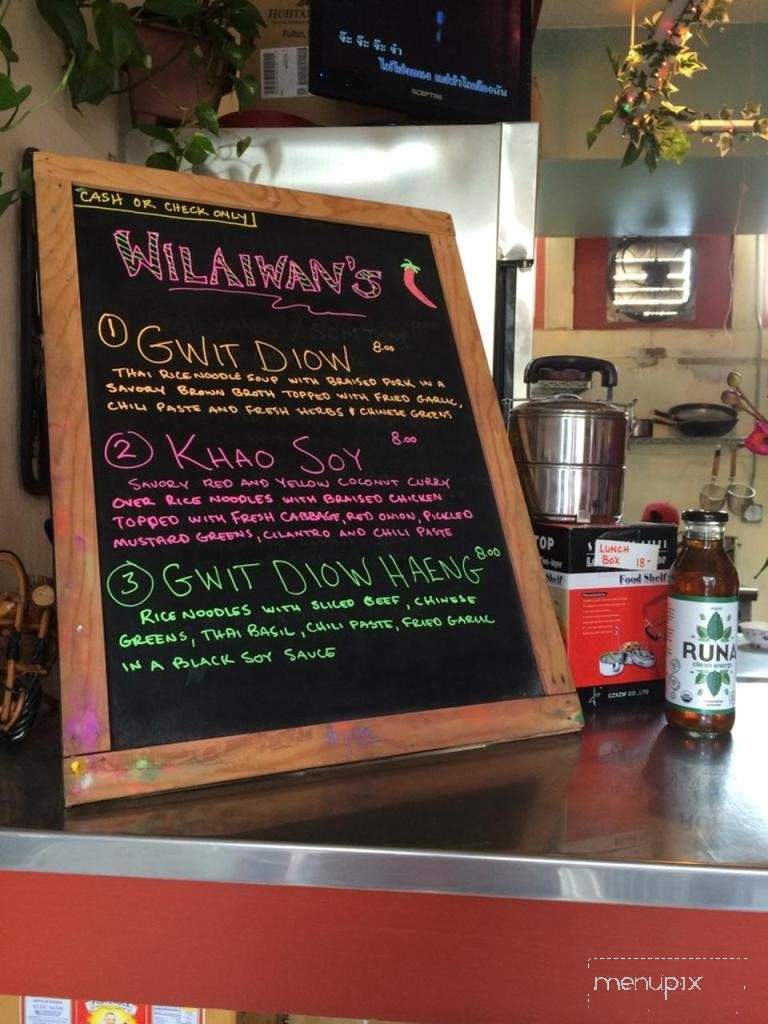 HUHTA
Fulton,
จ๊ะ จ๊ะ จ๊ะ จ๋า
SCEPTRE
CASH OR CHECK ONLY
WILAIWAN'S
1 GWIT DIOW 8.00
THAI RICE NOODLE SOUP WITH BRAISED PORK IN A
SAVORY BROWN BROTH TOPPED WITH FRIED GARLIC,
CHILI PASTE AND FRESH HERBS & CHINESE GREENS
2 KHAO SOY 8.00
SAVORY RED AND YELLOW COCONUT CURRY
OVER RICE NOODLES WITH BRAISED CHICKEN
TOPPED WITH FRESH CABBAGE, RED ONION, PICKLED
MUSTARD GREENS, CILANTRO AND CHILI PASTE
3 GWIT DIOW HAENG 8.00
RICE NOODLES WITH SLICED BEEF, CHINESE
GREENS, THAI BASIL, CHILI PASTE, FRIED GARLIC
IN A BLACK SOY SAUCE
TOP
LUNCH
BOX 18-
Shelf
Food Shelf
CZXZW CO.,LTD
RUNA
clean energy
menupix